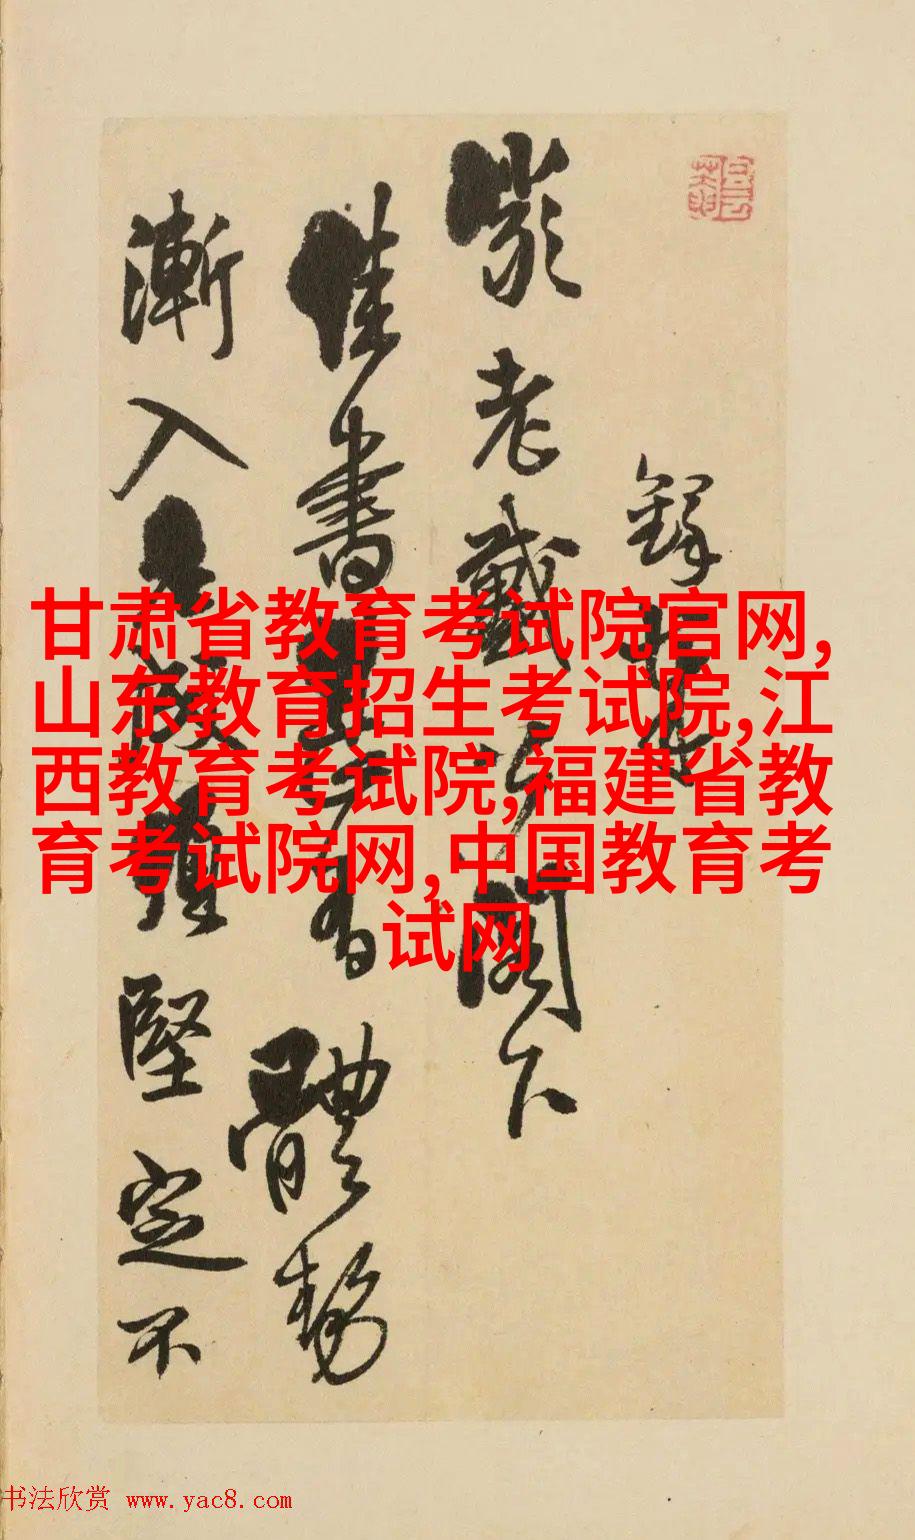 鐸
老戴閣下
佳書體勢
漸入堅定不
甘肃省教育考试院官网,
山东教育招生考试院,江
西教育考试院,福建省教
育考试院网,中国教育考
试网
书法欣赏 www.yac8.com